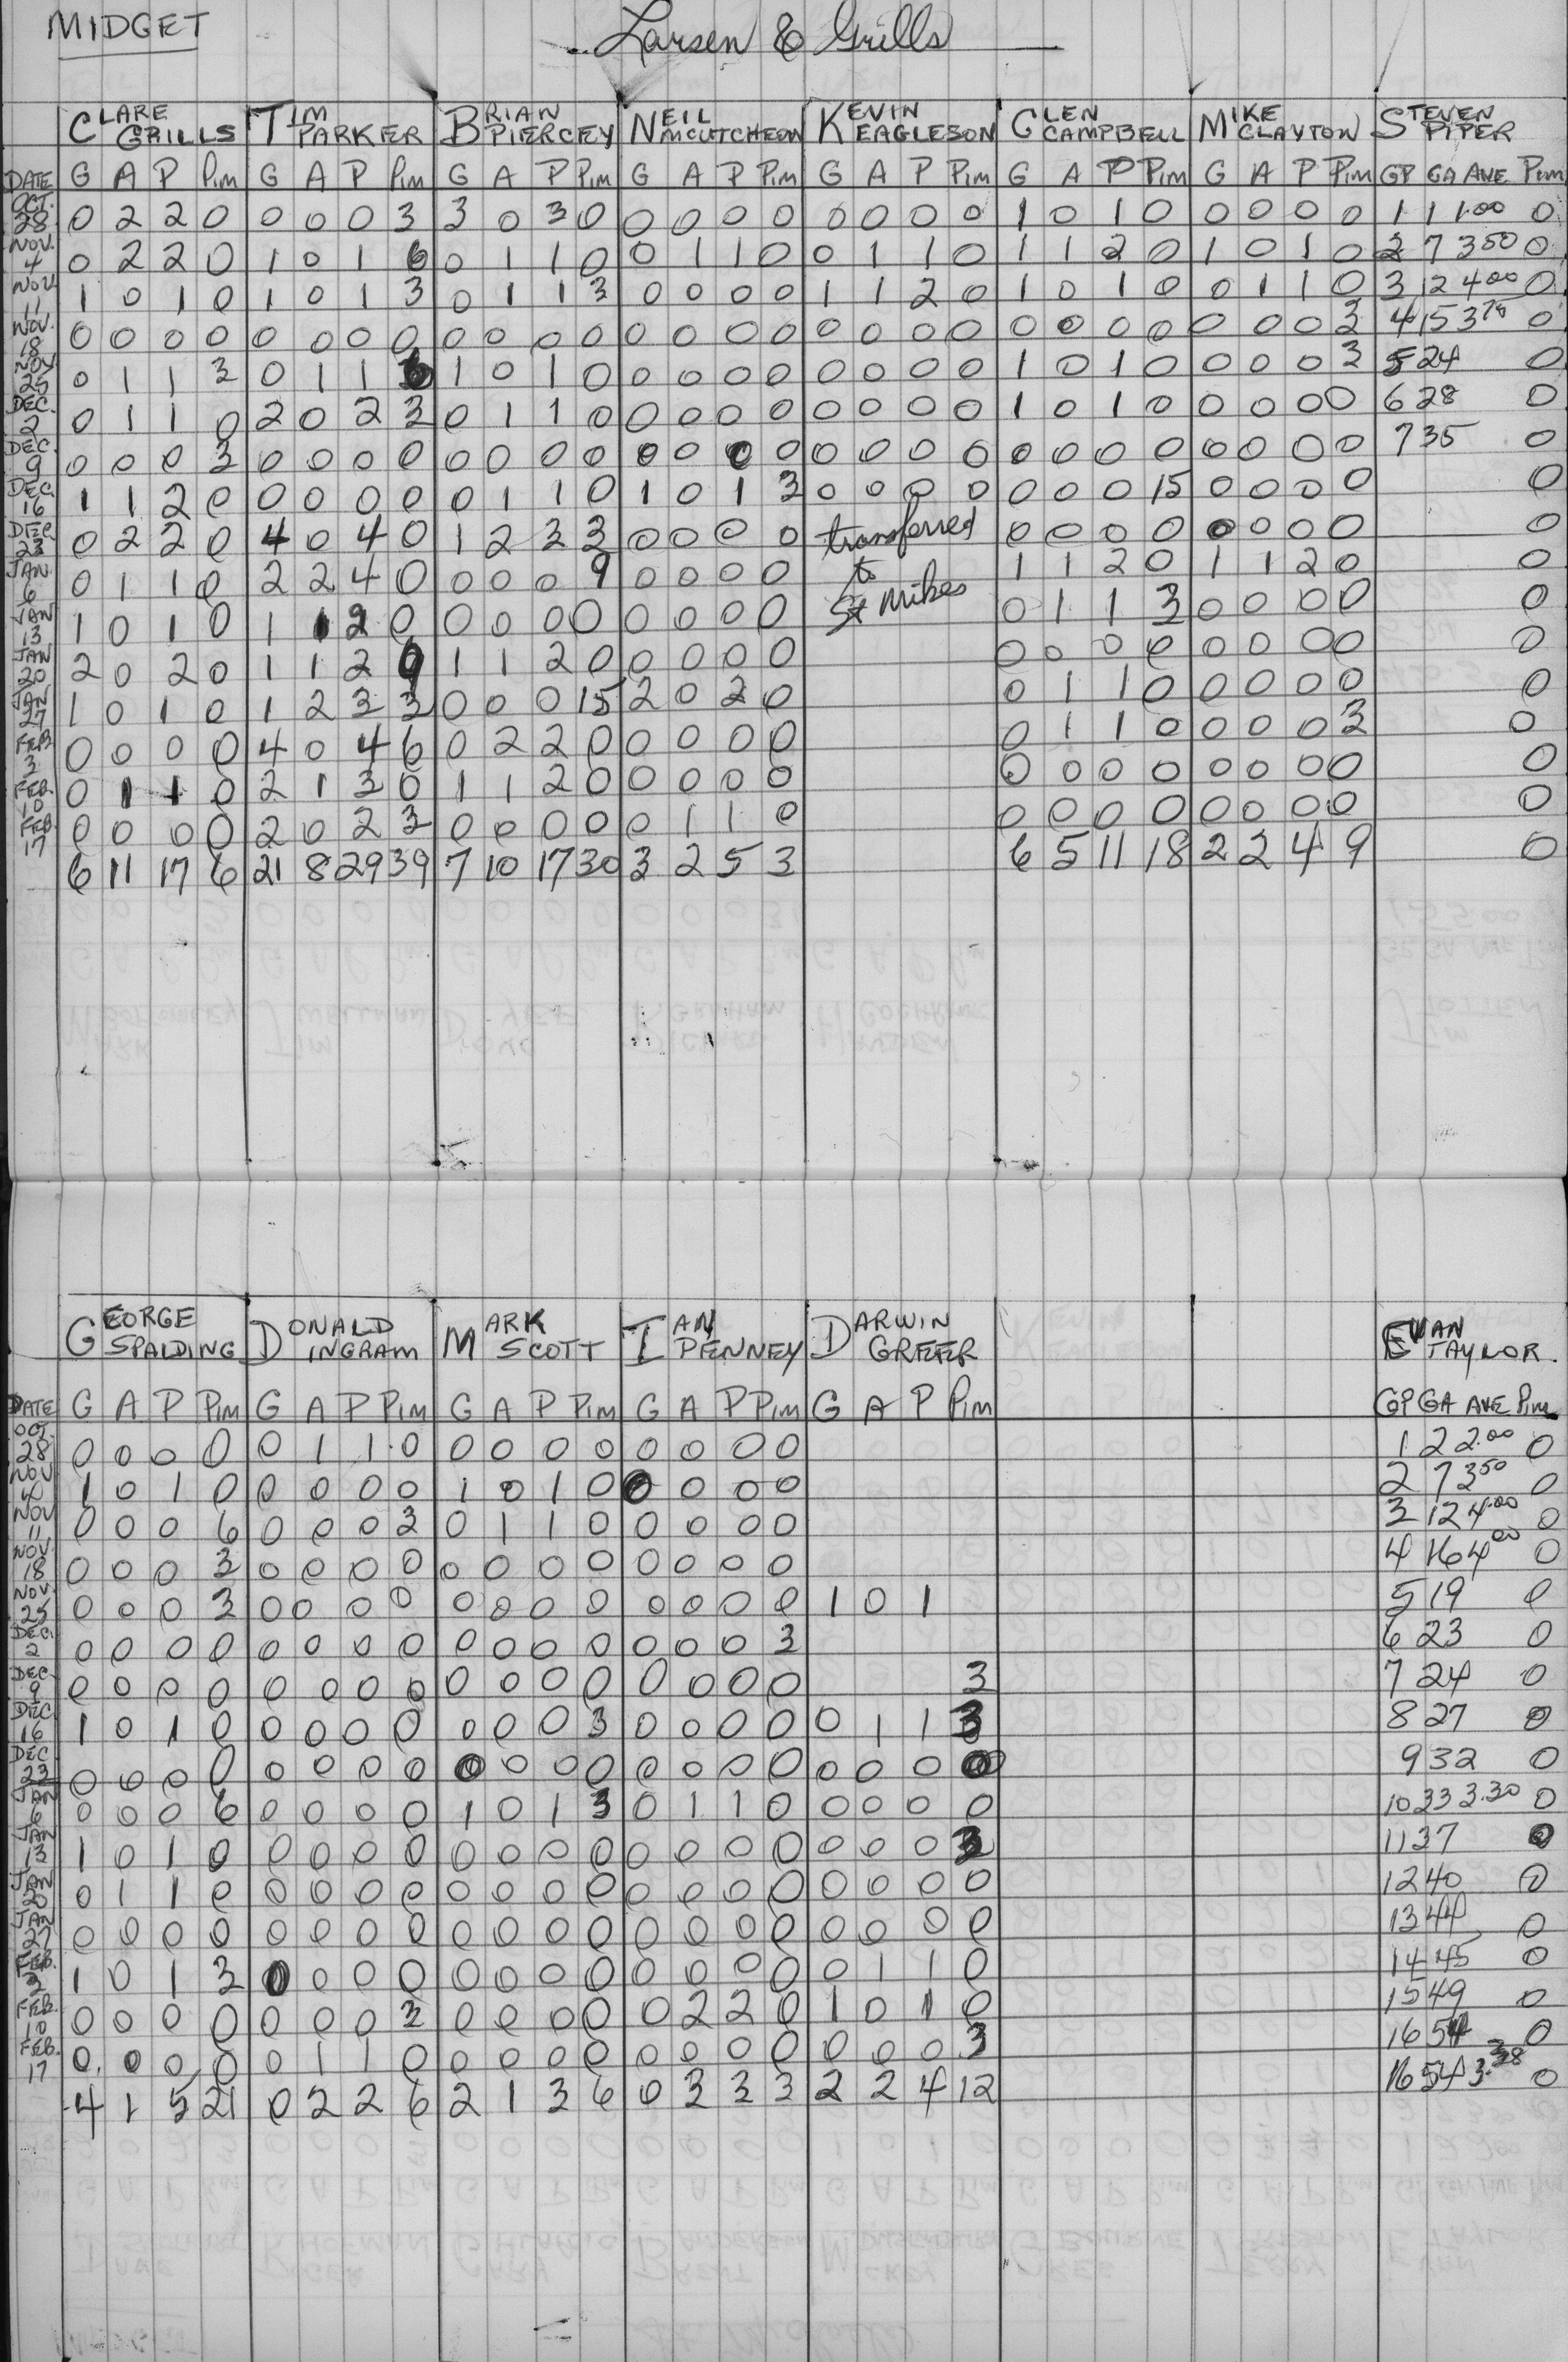 MIDGET
Larsen & Grills
CLARE GRILLS TIM PARKER BRIAN PIERCEY NEIL MCCUTCHEON KEVIN EAGLESON GLEN CAMPBELL MIKE CLAYTON STEVEN PIPER
DATE G A P Pim G A P Pim G A P Pim G A P Pim G A P Pim G A P Pim G A P Pim GP GA AVE Pim
OCT. 28 0 2 2 0 0 0 0 3 3 0 3 0 0 0 0 0 0 0 0 0 1 0 1 0 0 0 0 0 1 1 1.00 0
NOV. 4 0 2 2 0 1 0 1 6 0 1 1 0 0 1 1 0 0 1 1 0 1 1 2 0 1 0 1 0 2 7 3.50 0
NOV. 11 1 0 1 0 1 0 1 3 0 1 1 3 0 0 0 0 1 1 2 0 1 0 1 0 0 1 1 0 3 12 4.00 0
NOV. 18 0 0 0 0 0 0 0 0 0 0 0 0 0 0 0 0 0 0 0 0 0 0 0 0 0 0 0 3 4 15 3.75 0
NOV 25 0 1 1 3 0 1 1 1 0 1 0 0 0 0 0 0 0 0 0 1 0 1 0 0 0 0 3 5 24 0
DEC. 2 0 1 1 0 2 0 2 3 0 1 1 0 0 0 0 0 0 0 0 0 1 0 1 0 0 0 0 0 6 28 0
DEC. 9 0 0 0 3 0 0 0 0 0 0 0 0 0 0 0 0 0 0 0 0 0 0 0 0 0 0 0 0 7 35 0
DEC. 16 1 1 2 0 0 0 0 0 0 1 1 0 1 0 1 3 0 0 0 0 0 0 0 15 0 0 0 0 0
DEC. 23 0 2 2 0 4 0 4 0 1 2 3 3 0 0 0 0 transferred 0 0 0 0 0 0 0 0 0
JAN. 6 0 1 1 0 2 2 4 0 0 0 0 9 0 0 0 0 to 1 1 2 0 1 1 2 0 0
JAN 13 1 0 1 0 1 1 2 0 0 0 0 0 0 0 0 0 St Mikes 0 1 1 3 0 0 0 0 0
JAN 20 2 0 2 0 1 1 2 9 1 1 2 0 0 0 0 0 0 0 0 0 0 0 0 0 0
JAN 27 1 0 1 0 1 2 3 3 0 0 0 15 2 0 2 0 0 1 1 0 0 0 0 0 0
FEB 3 0 0 0 0 4 0 4 6 0 2 2 0 0 0 0 0 0 1 1 0 0 0 0 3 0
FEB. 10 0 1 1 0 2 1 3 0 1 1 2 0 0 0 0 0 0 0 0 0 0 0 0 0 0
FEB. 17 0 0 0 0 2 0 2 3 0 0 0 0 0 1 1 0 0 0 0 0 0 0 0 0 0
6 11 17 6 21 8 29 39 7 10 17 30 3 2 5 3 6 5 11 18 2 2 4 9 0
GEORGE SPALDING DONALD INGRAM MARK SCOTT IAN PENNEY DARWIN GREER EVAN TAYLOR.
DATE G A P Pim G A P Pim G A P Pim G A P Pim G A P Pim GP GA AVE Pim
OCT. 28 0 0 0 0 0 1 1 0 0 0 0 0 0 0 0 0 1 2 2.00 0
NOV 4 1 0 1 0 0 0 0 0 1 0 1 0 0 0 0 0 2 7 3.50 0
NOV 11 0 0 0 6 0 0 0 3 0 1 1 0 0 0 0 0 3 12 4.00 0
NOV. 18 0 0 0 3 0 0 0 0 0 0 0 0 0 0 0 0 4 16 4.00 0
NOV. 25 0 0 0 3 0 0 0 0 0 0 0 0 0 0 0 0 1 0 1 5 19 0
DEC. 2 0 0 0 0 0 0 0 0 0 0 0 0 0 0 0 3 6 23 0
DEC. 9 0 0 0 0 0 0 0 0 0 0 0 0 0 0 0 0 3 7 24 0
DEC. 16 1 0 1 0 0 0 0 0 0 0 0 3 0 0 0 0 0 1 1 3 8 27 0
DEC. 23 0 0 0 0 0 0 0 0 0 0 0 0 0 0 0 0 0 0 0 0 9 32 0
JAN 6 0 0 0 6 0 0 0 0 1 0 1 3 0 1 1 0 0 0 0 0 10 33 3.30 0
JAN 13 1 0 1 0 0 0 0 0 0 0 0 0 0 0 0 0 0 0 0 3 11 37 0
JAN 20 0 1 1 0 0 0 0 0 0 0 0 0 0 0 0 0 0 0 0 0 12 40 0
JAN 27 0 0 0 0 0 0 0 0 0 0 0 0 0 0 0 0 0 0 0 0 13 44 0
FEB. 3 1 0 1 3 0 0 0 0 0 0 0 0 0 0 0 0 0 1 1 0 14 45 0
FEB. 10 0 0 0 0 0 0 0 3 0 0 0 0 0 2 2 0 1 0 1 0 15 49 0
FEB. 17 0 0 0 0 0 1 1 0 0 0 0 0 0 0 0 0 0 0 0 3 16 54 0
4 1 5 21 0 2 2 6 2 1 3 6 0 3 3 3 2 2 4 12 16 54 3.38 0